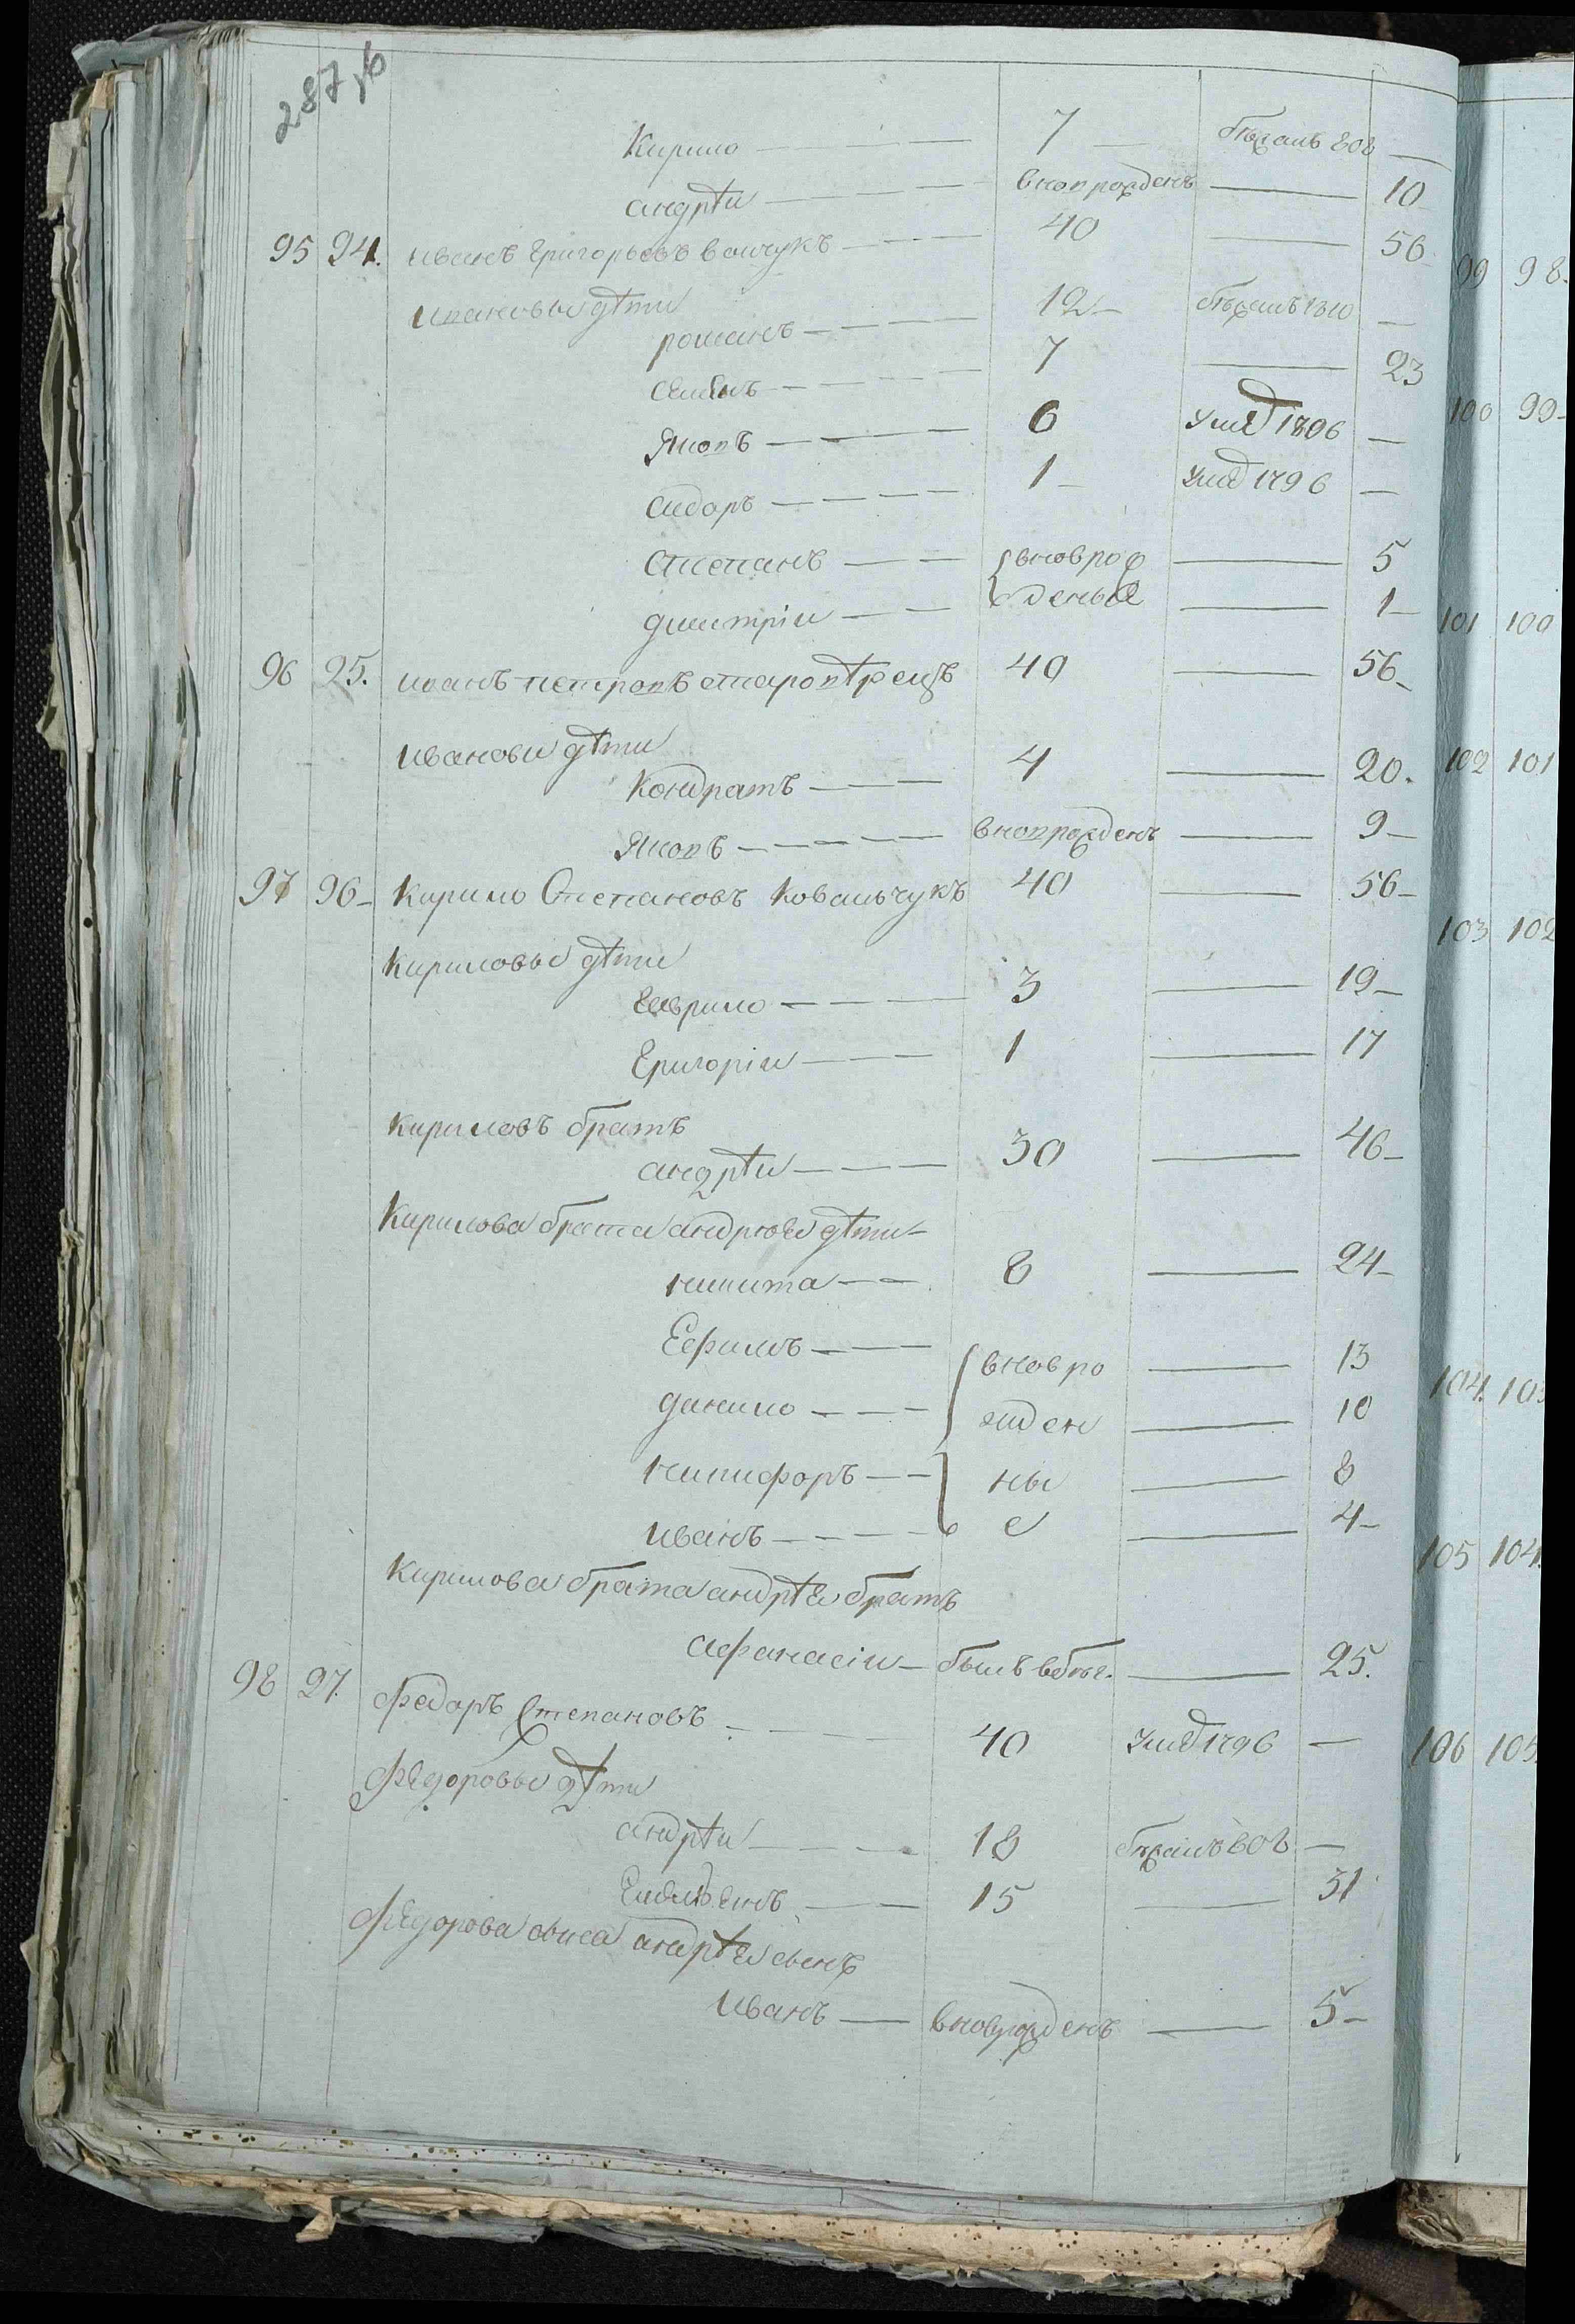 287 об
Кирило — 7 — бѣжалъ 808 —
андрѣи — вновьрожденъ — 10
95 94. иванъ Григорьевъ вовчукъ — 40 — 56
ивановы дѣти
романъ — 12 — бѣжалъ 1810 —
семенъ — 7 — 23
Яковъ — 6 умер 1806 —
сидоръ — 1 — умер 1796 —
степанъ — вноврож — 5
дмитріи — деные — 1
96 95. иванъ петровъ 40 — 56
ивановы дѣти
Кондратъ — 4 — 20.
Яковъ — вноврожденъ — 9
97 96 Кирило Степановъ Ковальчукъ 40 — 56
Кириловы дѣти
Гаврило — 3 — 19
Григоріи — 1 — 17
Кириловъ братъ
андрѣи — 30 — 46
Кирилова брата андрюеы дѣти
никита — 8 — 24
Ефимъ — вновро — 13
данило — жден — 10
никифоръ — ны — 8
иванъ — е — 4
Кирилова брата андрѣя братъ
афанасіи — былъ вбѣг. — 25.
98 97. федоръ степановъ — 40 умер 1796 —
федоровы дѣти
андрѣи — 18 бѣжалъ 808 —
15 — 31
федорова сына андрѣя сынъ
иванъ — вноврожденъ — 5
99 98.
100 99
101 100
102 101
103 102
104. 103
105 104.
106 105